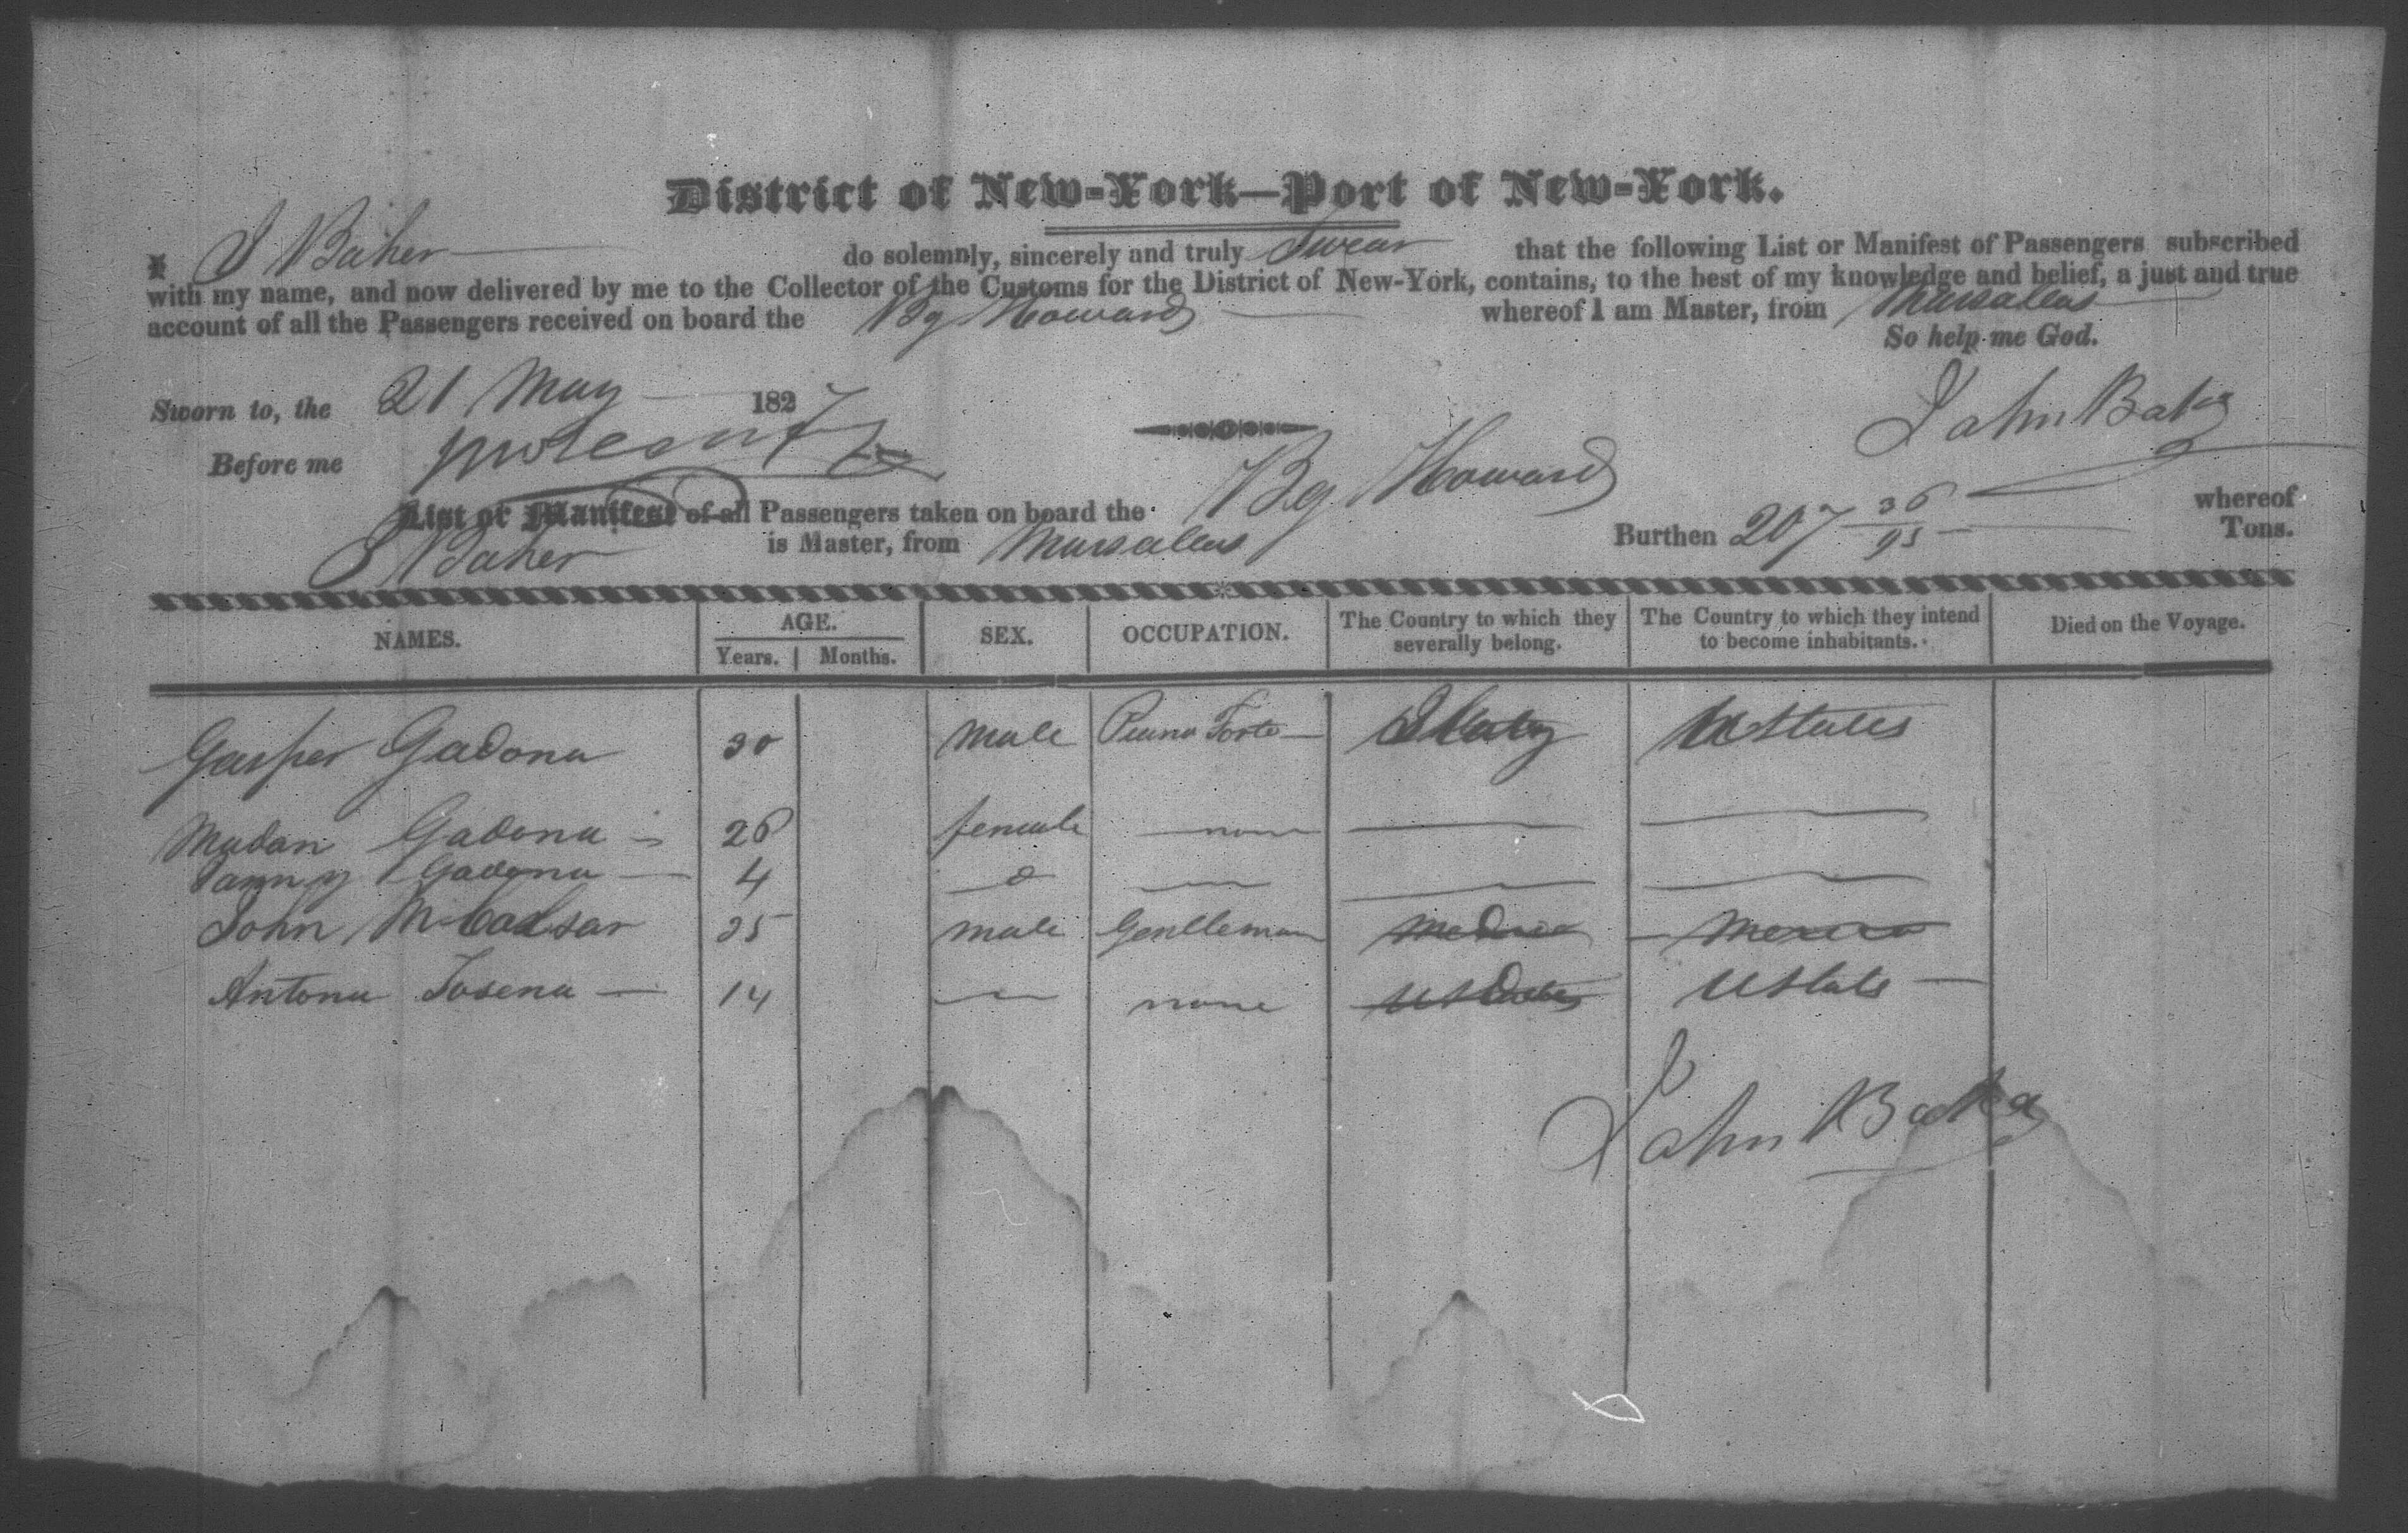 District of New-York—Port of New-York.
I J Baker do solemnly, sincerely and truly Swear that the following List or Manifest of Passengers subscribed
with my name, and now delivered by me to the Collector of the Customs for the District of New-York, contains, to the best of my knowledge and belief, a just and true
account of all the Passengers received on board the Bg Howard whereof I am Master, from Marsalles
So help me God.
Sworn to, the 21 May 1827
John Baker
Before me
List or Manifest of all Passengers taken on board the Bg Howard whereof
J Baker is Master, from Marsalles Burthen 207 36/95 Tons.
NAMES. AGE. Years. Months. SEX. OCCUPATION. The Country to which they severally belong. The Country to which they intend to become inhabitants. Died on the Voyage.
Gasper Gadona 30 male Piano Forte Italy U States
Madan Gadona 26 female none
Fanny Gadona 4 do
John 35 male Gentleman Mexico Mexico
Antona Tosena 14 none U States U State
John Baker